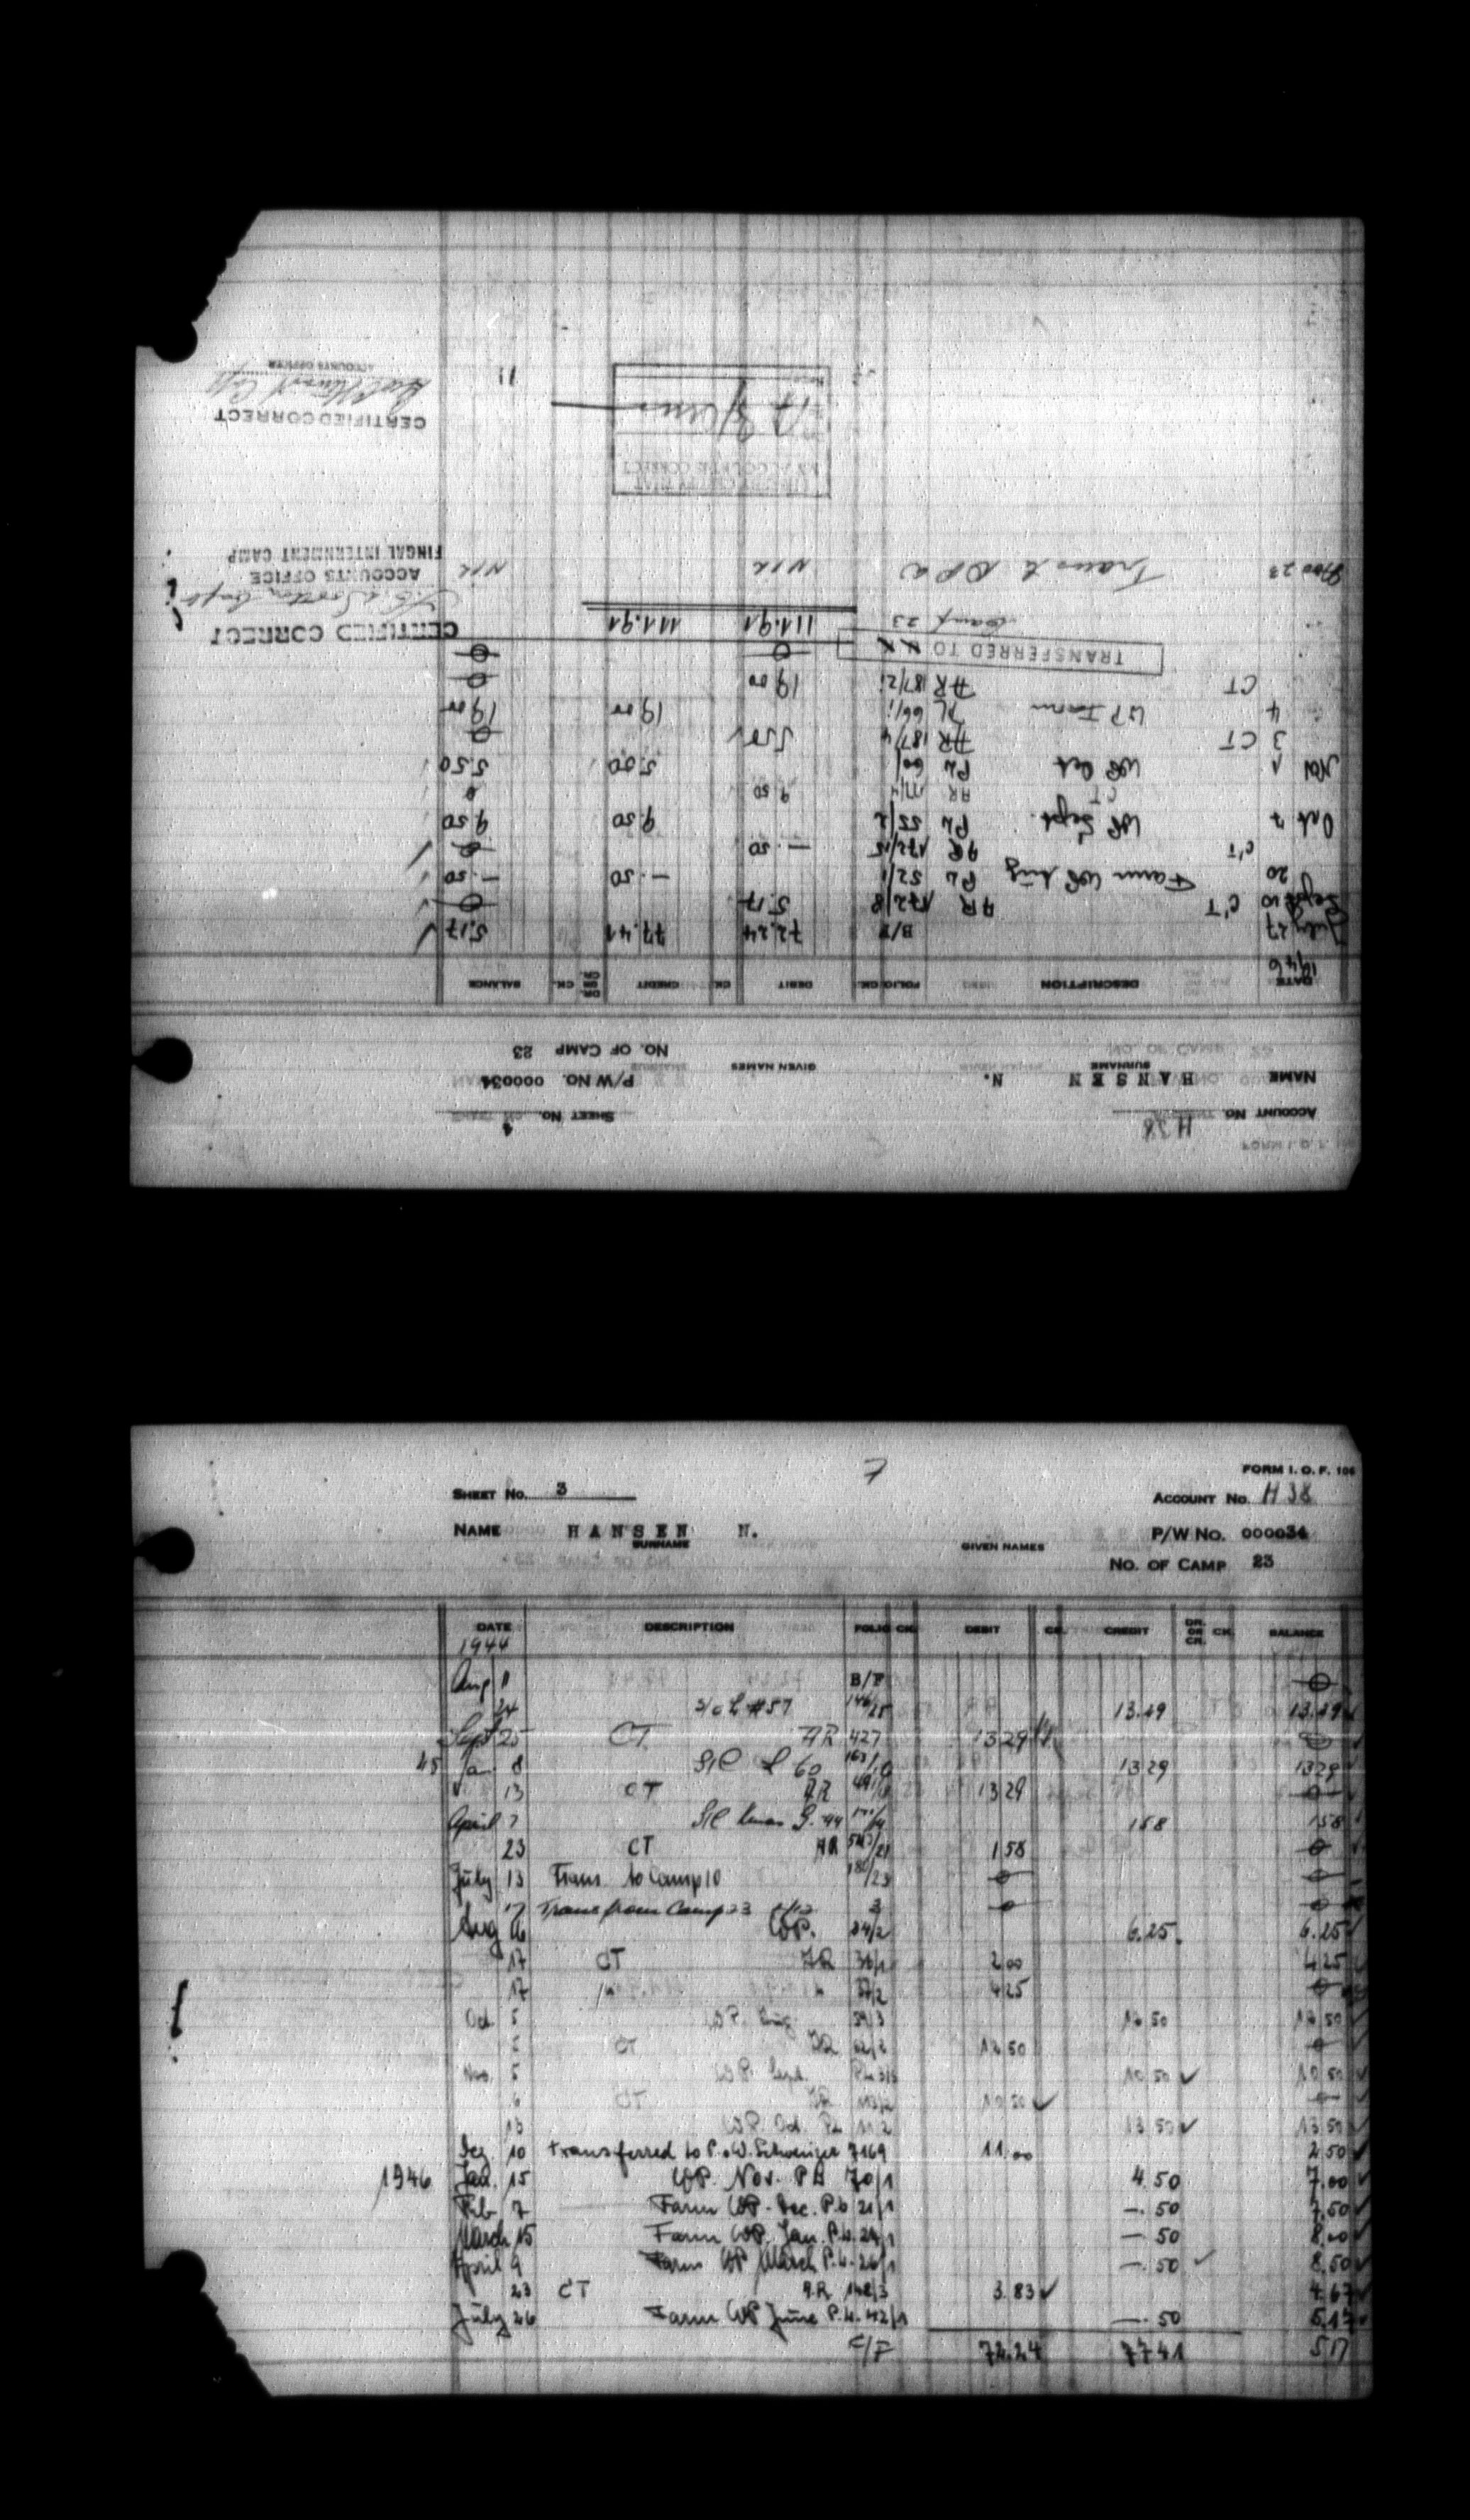 FORM I. O. F.
ACCOUNT NO. H 38
SHEET NO. 4
NAME HANSEN N.
SURNAME GIVEN NAMES
P/W NO. 000034
NO. OF CAMP 23
DATE DESCRIPTION FOLIO CK. DEBIT CK. CREDIT DR. OR CR. CK. BALANCE
1946
July 27 B/F 72.24 77.41 5.17
Sept 10 C'T AR 172/8 5.17 0
20 Farm WP Aug PL 52/1 —.50 —.50
C'T AR 172/15 —.50 0
Oct 7 WP Sept. PL 55/2 9.50 9.50
CT AR 9 50 0
Nov 1 WP Oct PL 60/1 5.00 5.50
3 CT AR 187/4 5 50 0
4 WP Farm PL 66/1 19 00 19 00
CT AR 187/21 19 00 0
TRANSFERRED TO
Camp 23 111.91 111.91
CERTIFIED CORRECT
ACCOUNTS OFFICE
FINGAL INTERNMENT CAMP
23 Trans to Nil Nil
I HEREBY CERTIFY THAT
MY ACCOUNT IS CORRECT
CERTIFIED CORRECT
ACCOUNTS OFFICER
7
FORM I. O. F. 106
SHEET NO. 3
ACCOUNT NO. H 38
NAME HANSEN N.
SURNAME GIVEN NAMES
P/W NO. 000034
NO. OF CAMP 23
DATE DESCRIPTION FOLIO CK. DEBIT CK. CREDIT DR. OR CR. CK. BALANCE
1944
Aug 1 B/F 0
24 S/C L #57 146/25 13.29 13.29
Sept 25 CT AR 427 13 29 0
45 Jan 8 S/C L 60 163/10 13 29 13 29
13 CT AR 13 29 0
April 7 S/C Xmas G. 44 1 58 1 58
23 CT AR 1 58 0
July 13 Trans. to Camp 10 0 0
17 Trans from Camp 23 3 0 0
Aug 16 WP. 24/2 6.25 6.25
17 CT AR 36/1 2 00 4 25
17 4 25 0
Oct 5 WP. Aug. 59/3 12 50 12 50
CT AR 62/2 12 50 0
Nov. 5 WP. Sept. 10 50 10 50
6 CT AR 10 50 0
13 WP. Oct. PL 11/2 13 50 13 50
Dez. 10 transferred to P.o.W. Schweizer 7169 11.00 2 50
1946 Jan. 15 WP. Nov. PL 70/1 4.50 7.00
Feb 7 Farm WP. Dec. P.L. 21/1 —.50 7.50
March 15 Farm WP. Jan. P.L. 24/1 —.50 8.00
April 9 Farm WP March P.L. 26/1 —.50 8.50
23 CT AR 148/3 3.83 4.67
July 26 Farm WP June P.L. 42/1 —.50 5.17
C/F 72.24 77 41 5 17